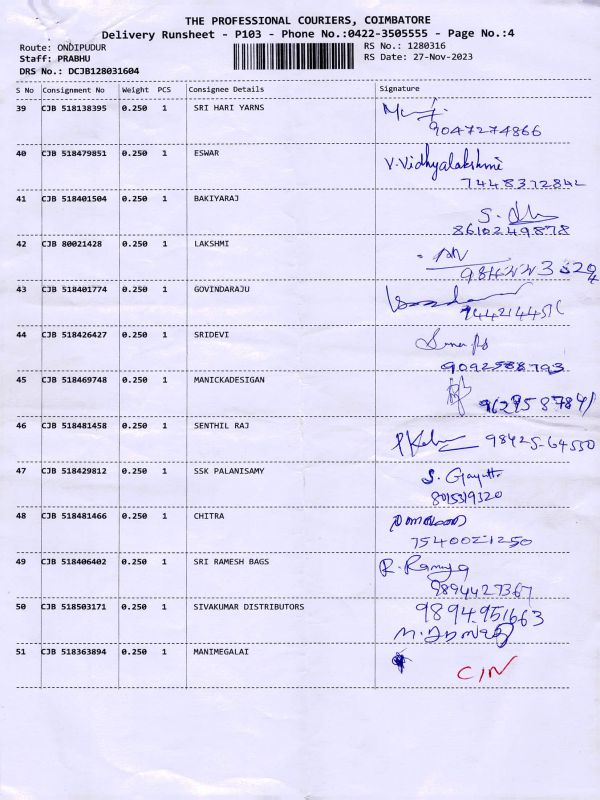 THE PROFESSIONAL COURIERS, COIMBATORE
Delivery Runsheet - P103 - Phone No.:0422-3505555 - Page No.:4
Route: ONDIPUDUR
RS No.: 1280316
Staff: PRABHU
RS Date: 27-Nov-2023
DRS No.: DCJB128031604
S No Consignment No Weight PCS Consignee Details Signature
39 CJB 518138395 0.250 1 SRI HARI YARNS
9047274866
40 CJB 518479851 0.250 1 ESWAR V.Vidhyalakshmi
41 CJB 518401504 0.250 1 BAKIYARAJ
8610249878
42 CJB 80021428 0.250 1 LAKSHMI
43 CJB 518401774 0.250 1 GOVINDARAJU
44 CJB 518426427 0.250 1 SRIDEVI
9092588793
45 CJB 518469748 0.250 1 MANICKADESIGAN
46 CJB 518481458 0.250 1 SENTHIL RAJ 98425-64550
47 CJB 518429812 0.250 1 SSK PALANISAMY S. Gayathri
8015319320
48 CJB 518481466 0.250 1 CHITRA
7540021250
49 CJB 518406402 0.250 1 SRI RAMESH BAGS R. Ramya
9894427367
50 CJB 518503171 0.250 1 SIVAKUMAR DISTRIBUTORS 9894951663
51 CJB 518363894 0.250 1 MANIMEGALAI C/N